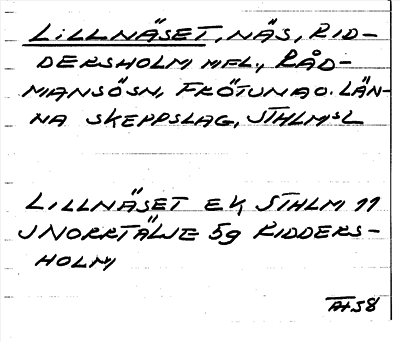 LILLNÄSET, NÄS, RID-
DERSHOLM MFL., RÅD-
MANSÖSN, FRÖTUNA O. LÄN-
NA SKEPPSLAG, STHLMSL
LILLNÄSET EK STHLM 11
JNORRTÄLJE 59 RIDDERS-
HOLM